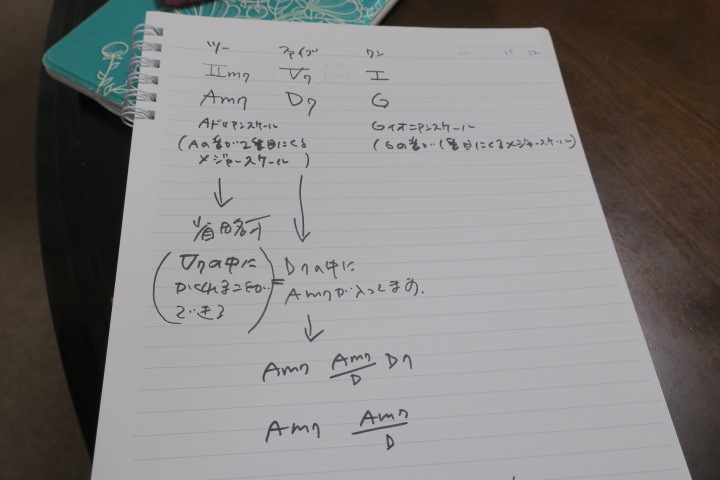 ツー ファイブ ワン
IIm7 V7 I
Am7 D7 G
Aドリアンスケール Gイオニアンスケール
(Aの音が2番目にくる (Gの音が1番目にくるメジャースケール)
メジャースケール)
↓ ↓
省略可
(V7の中に = D7の中に
かくれることが Am7が入ってます。
できる)
↓
Am7 Am7/D D7
Am7 Am7/D